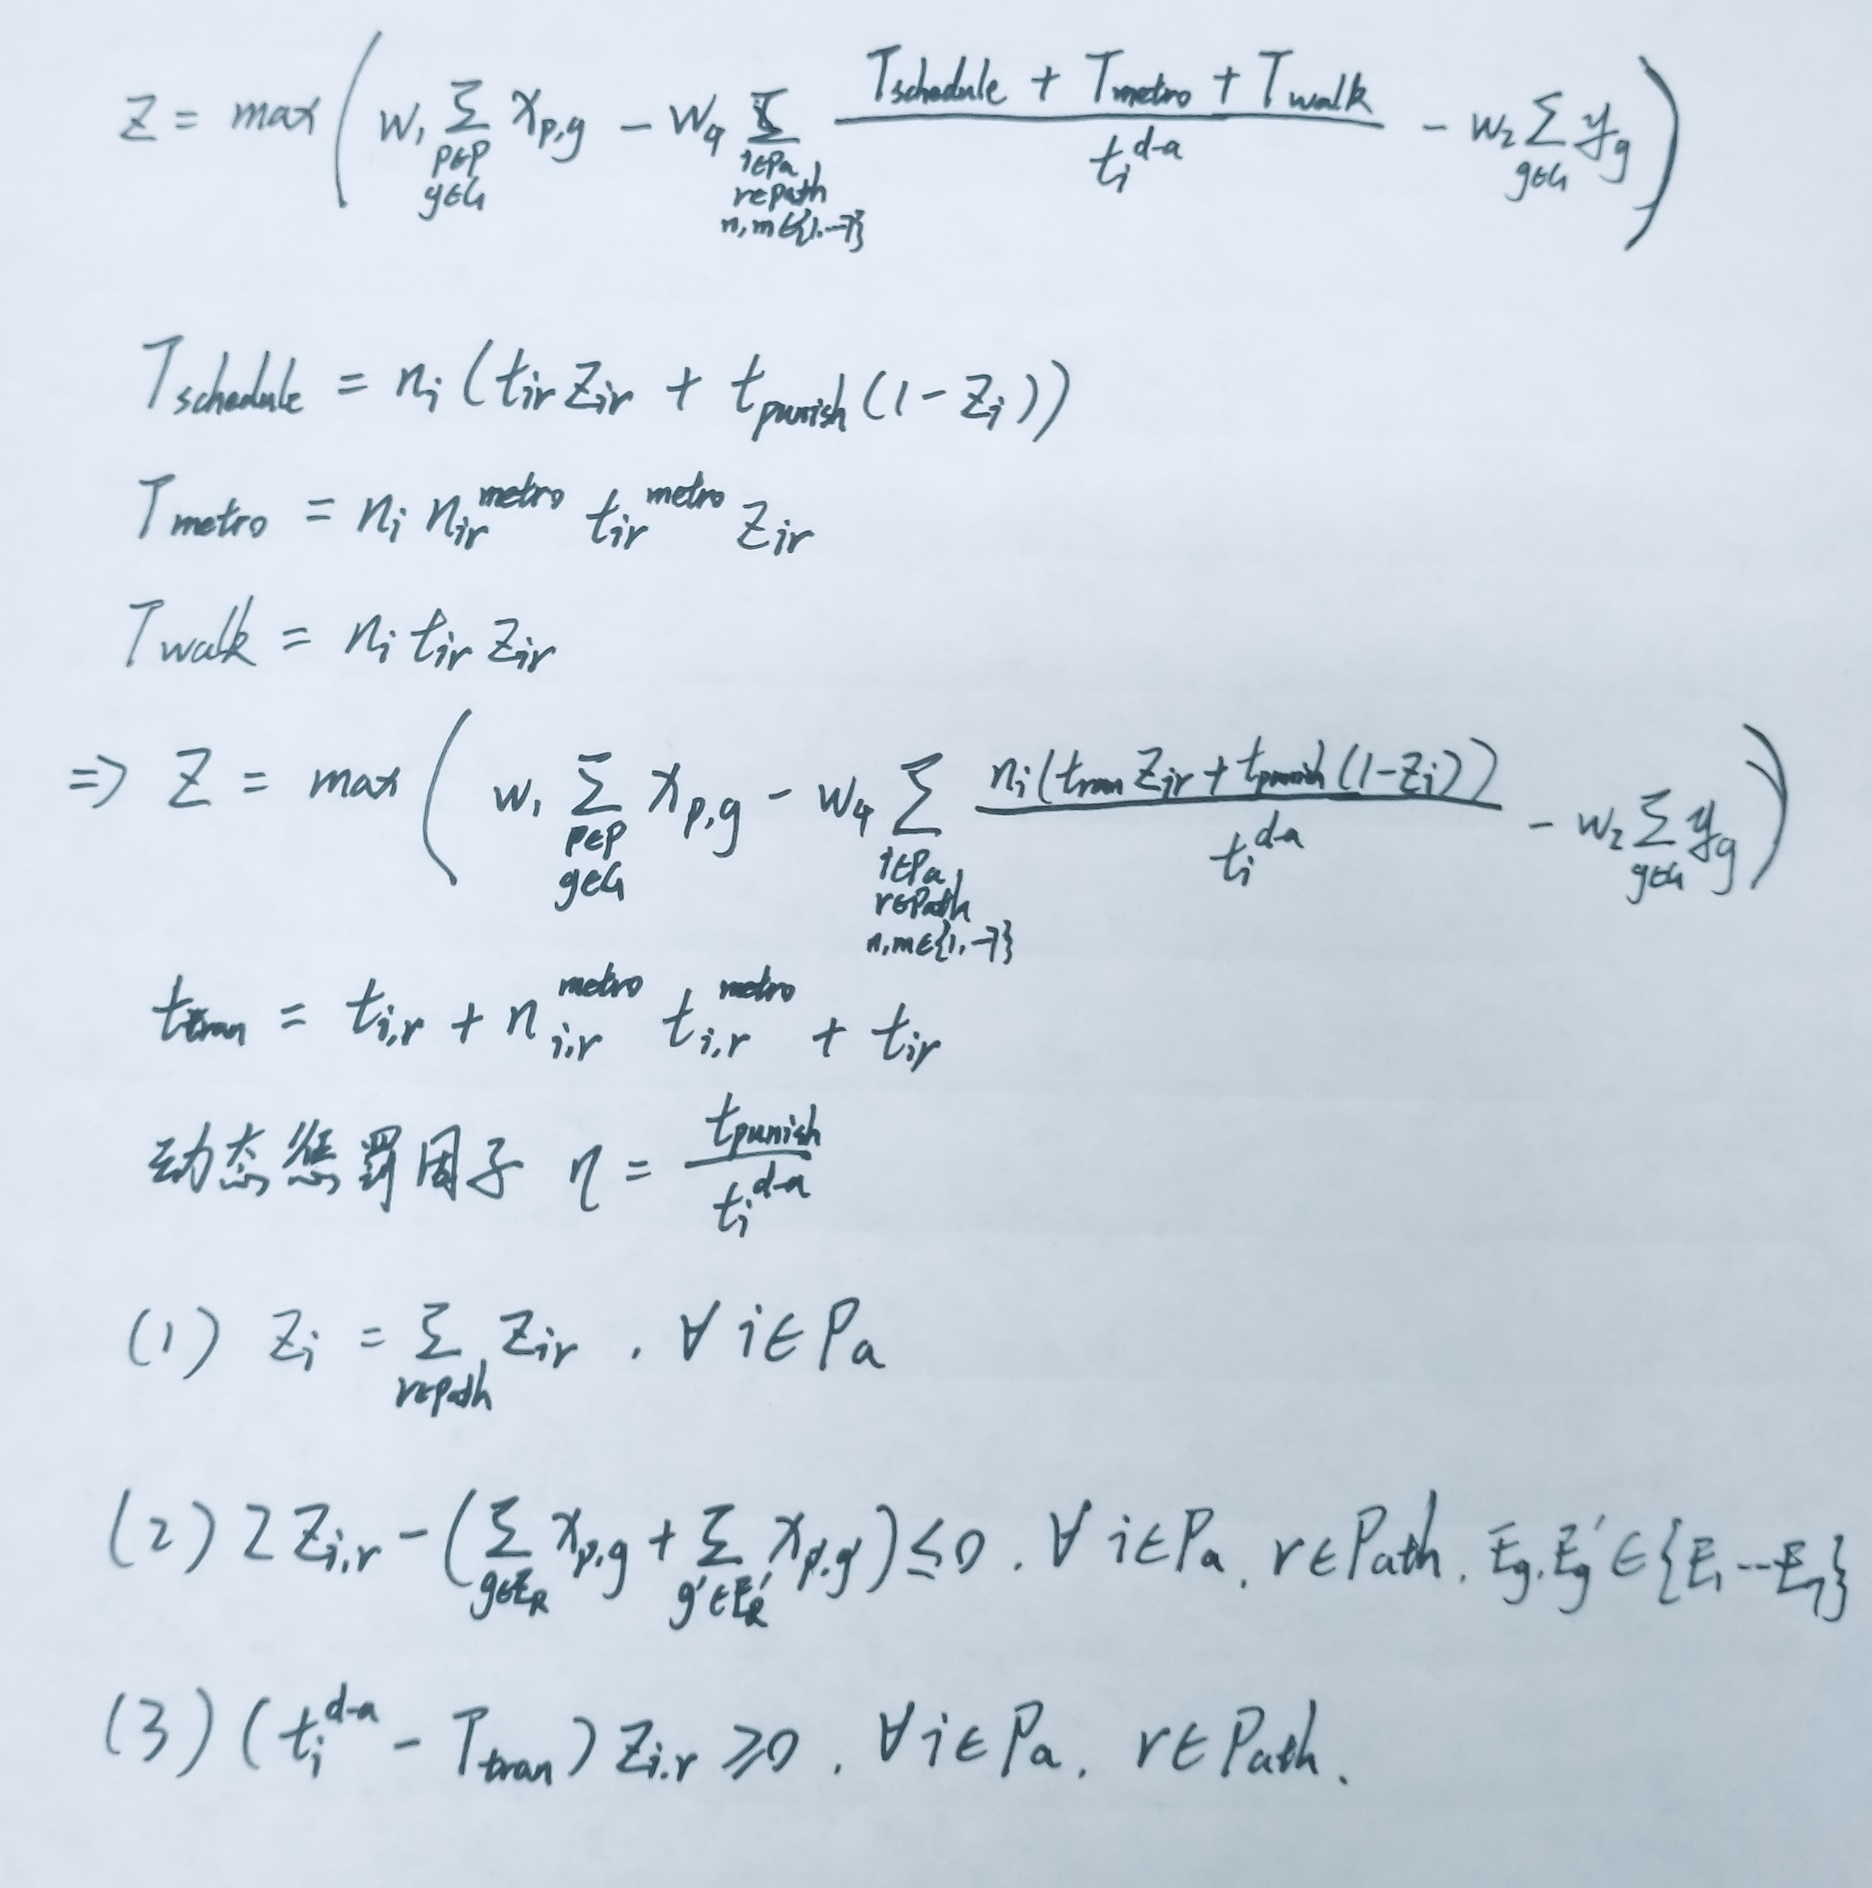 Z = max ( w₁ ∑_{p∈P, g∈G} x_{p,g} − w₄ ∑_{i∈Pa, r∈Path, n,m∈{1,…7}} (T_schedule + T_metro + T_walk) / t_i^{d-a} − w₂ ∑_{g∈G} y_g )
T_schedule = n_i (t_ir z_ir + t_punish (1 − z_i))
T_metro = n_i n_ir^metro t_ir^metro z_ir
T_walk = n_i t_ir z_ir
⇒ Z = max ( w₁ ∑_{p∈P, g∈G} x_{p,g} − w₄ ∑_{i∈Pa, r∈Path, n,m∈{1,…7}} n_i (t_tran z_ir + t_punish (1 − z_i)) / t_i^{d-a} − w₂ ∑_{g∈G} y_g )
t_tran = t_{i,r} + n_{i,r}^metro t_{i,r}^metro + t_ir
动态惩罚因子 η = t_punish / t_i^{d-a}
(1) z_i = ∑_{r∈Path} z_ir , ∀ i∈Pa
(2) 2 z_{i,r} − (∑_{g∈E_R} x_{p,g} + ∑_{g'∈E'_R} x_{p,g'}) ≤ 0 , ∀ i∈Pa , r∈Path , E_g, E_g' ∈ {E₁ … E₇}
(3) (t_i^{d-a} − T_tran) z_{i,r} ≥ 0 , ∀ i∈Pa , r∈Path .